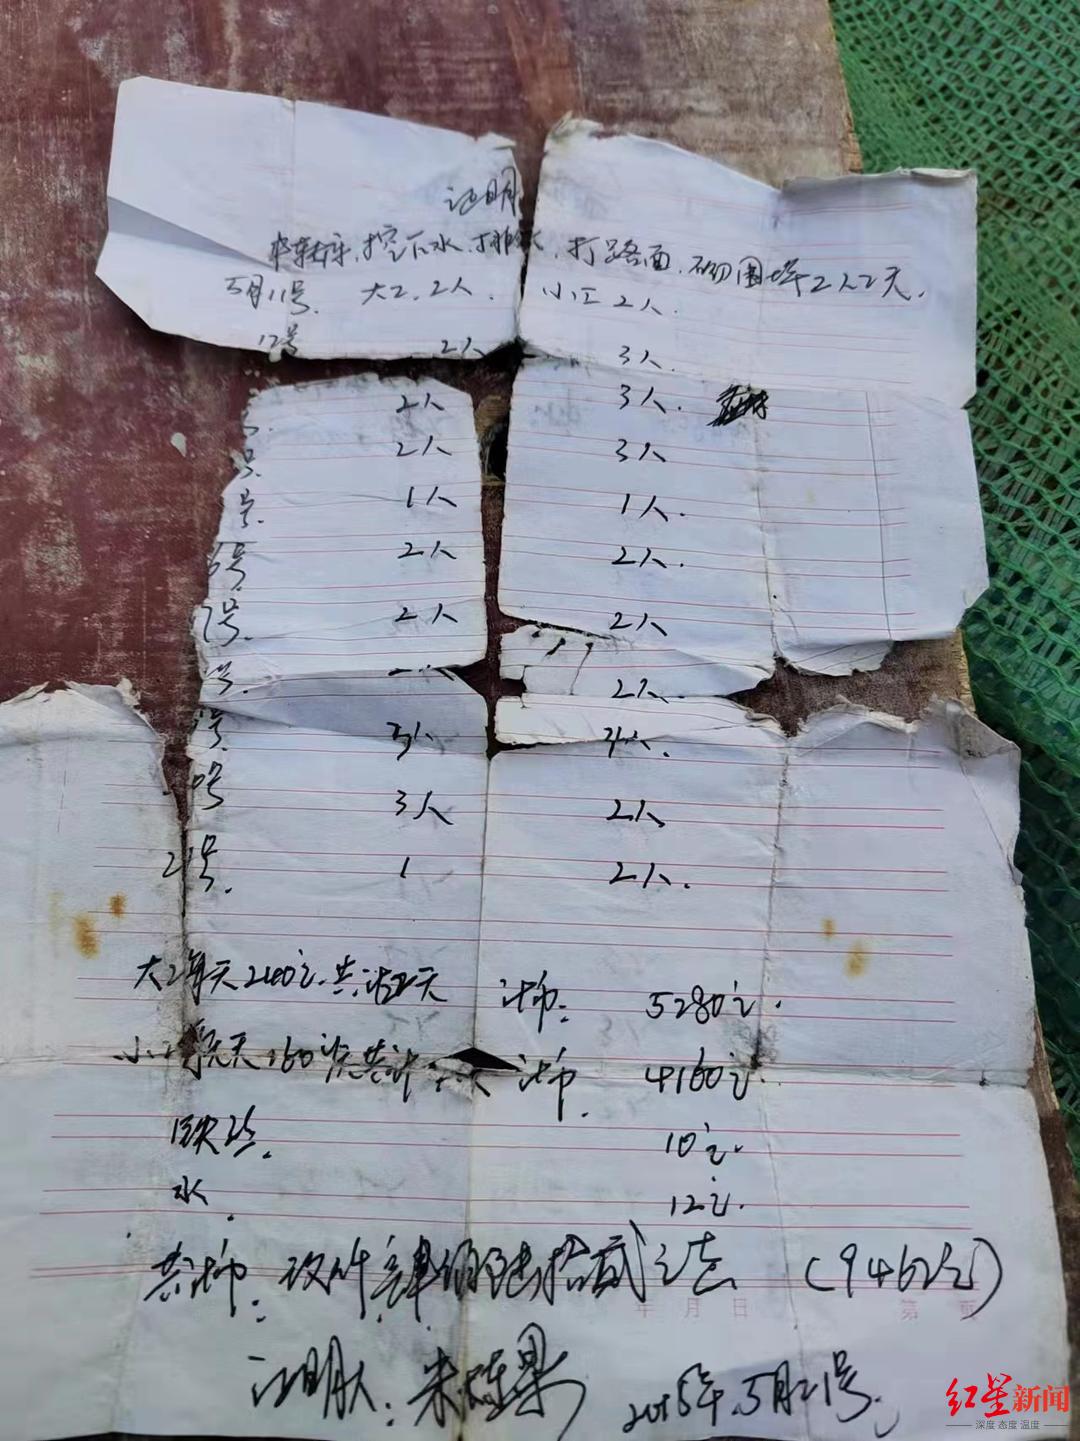 证明
挖下水,排水,打路面,砌围墙2人2天.
5月11号. 大工.2人. 小工2人.
12号 2人 3人.
2人 3人.
号. 2人 3人
号. 1人 1人.
6号. 2人 2人.
7号. 2人 2人
号. 2人.
号. 3人 4人.
号 3人 2人
21号. 1 2人.
大工每天240元.共计 天 计币: 5280元.
小工每天160元共计 天 计币. 4160元.
铁丝. 10元.
水. 12元.
共计币: 玖仟肆佰陆拾贰元 (9462元)
年 月 日 第 页
证明人: 朱 2015年.5月21号.
红星新闻
深度 态度 温度